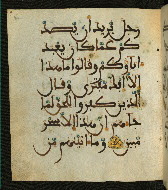 رجل يريد ان يصد
كم عما كان يعبد
اباوكم وقالوا ما هذا
الا افك مفترى وقال
الذين كفروا للحق لما
جاهم ان هذا الا سحر
مبين وما اتينهم من